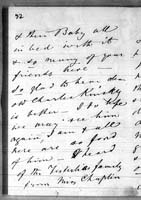 92
& their Baby all
in bed with it
& so many of your
friends here
so glad to hear dear
old Charles Kingsley
is better – I do hope
we may see him
again, I am & all
here are so fond
of him – I heard
of the family
from Miss Chaplin